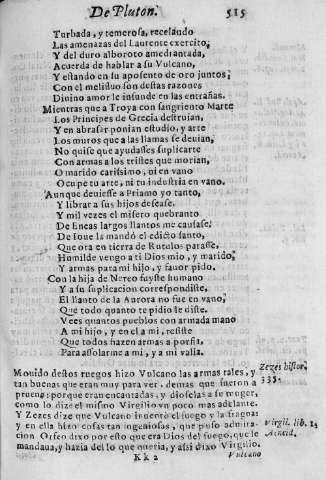 De Pluton. 515
Turbada, y temerosa, recelando
Las amenazas del Laurente exercito,
Y del duro alboroto amedrantada,
Acuerda de hablar a su Vulcano,
Y estando en su aposento de oro juntos,
Con el melifluo son destas razones
Diuino amor le insunde en las entrañas.
Mientras que a Troya con sangriento Marte
Los Principes de Grecia destruian,
Y en abrasar ponian estudio, y arte
Los muros que a las llamas se deuian,
No quise que ayudasses suplicarte
Con armas a los tristes que morian,
O marido carissimo, ni en vano
Ocupe tu arte, ni tu industria en vano.
Aunque deuiesse a Priamo yo tanto,
Y librar a sus hijos desease.
Y mil vezes el misero quebranto
De Eneas largos llantos me causase:
De Ioue la mandó el edicto santo,
Que ora en tierra de Rutulos parasse,
Humilde vengo a ti Dios mio, y marido,
Y armas para mi hijo, y fauor pido.
Con la hija de Nereo fuyste humano
Y a su suplicacion correspondiste,
El llanto de la Aurora no fue en vano,
Que todo quanto te pidio le diste.
Vees quantos pueblos con armada mano
A mi hijo, y en el a mi, resiste
Que todos hazen armas a porfia,
Para assolarme a mi, y a mi valia.
Mouido destos ruegos hizo Vulcano las armas tales, y
tan buenas que eran muy para ver, demas que fueron a
prueua: porque eran encantadas, y dioselas a su muger,
como lo dize el mismo Virgilio vn poco mas adelante.
Y Zezes dize que Vulcano inuentò el fuego y la fragua:
y en ella hizo cosas tan ingeniosas, que puso admira-
cion Orfeo dixo por esto que era Dios del fuego, que le
mandaua, y hazia del lo que queria, y assi dixo Virgilio.
Zezes histor.
335.
Virgil. lib. 14
Aeneid.
Kk 2
Vulcano